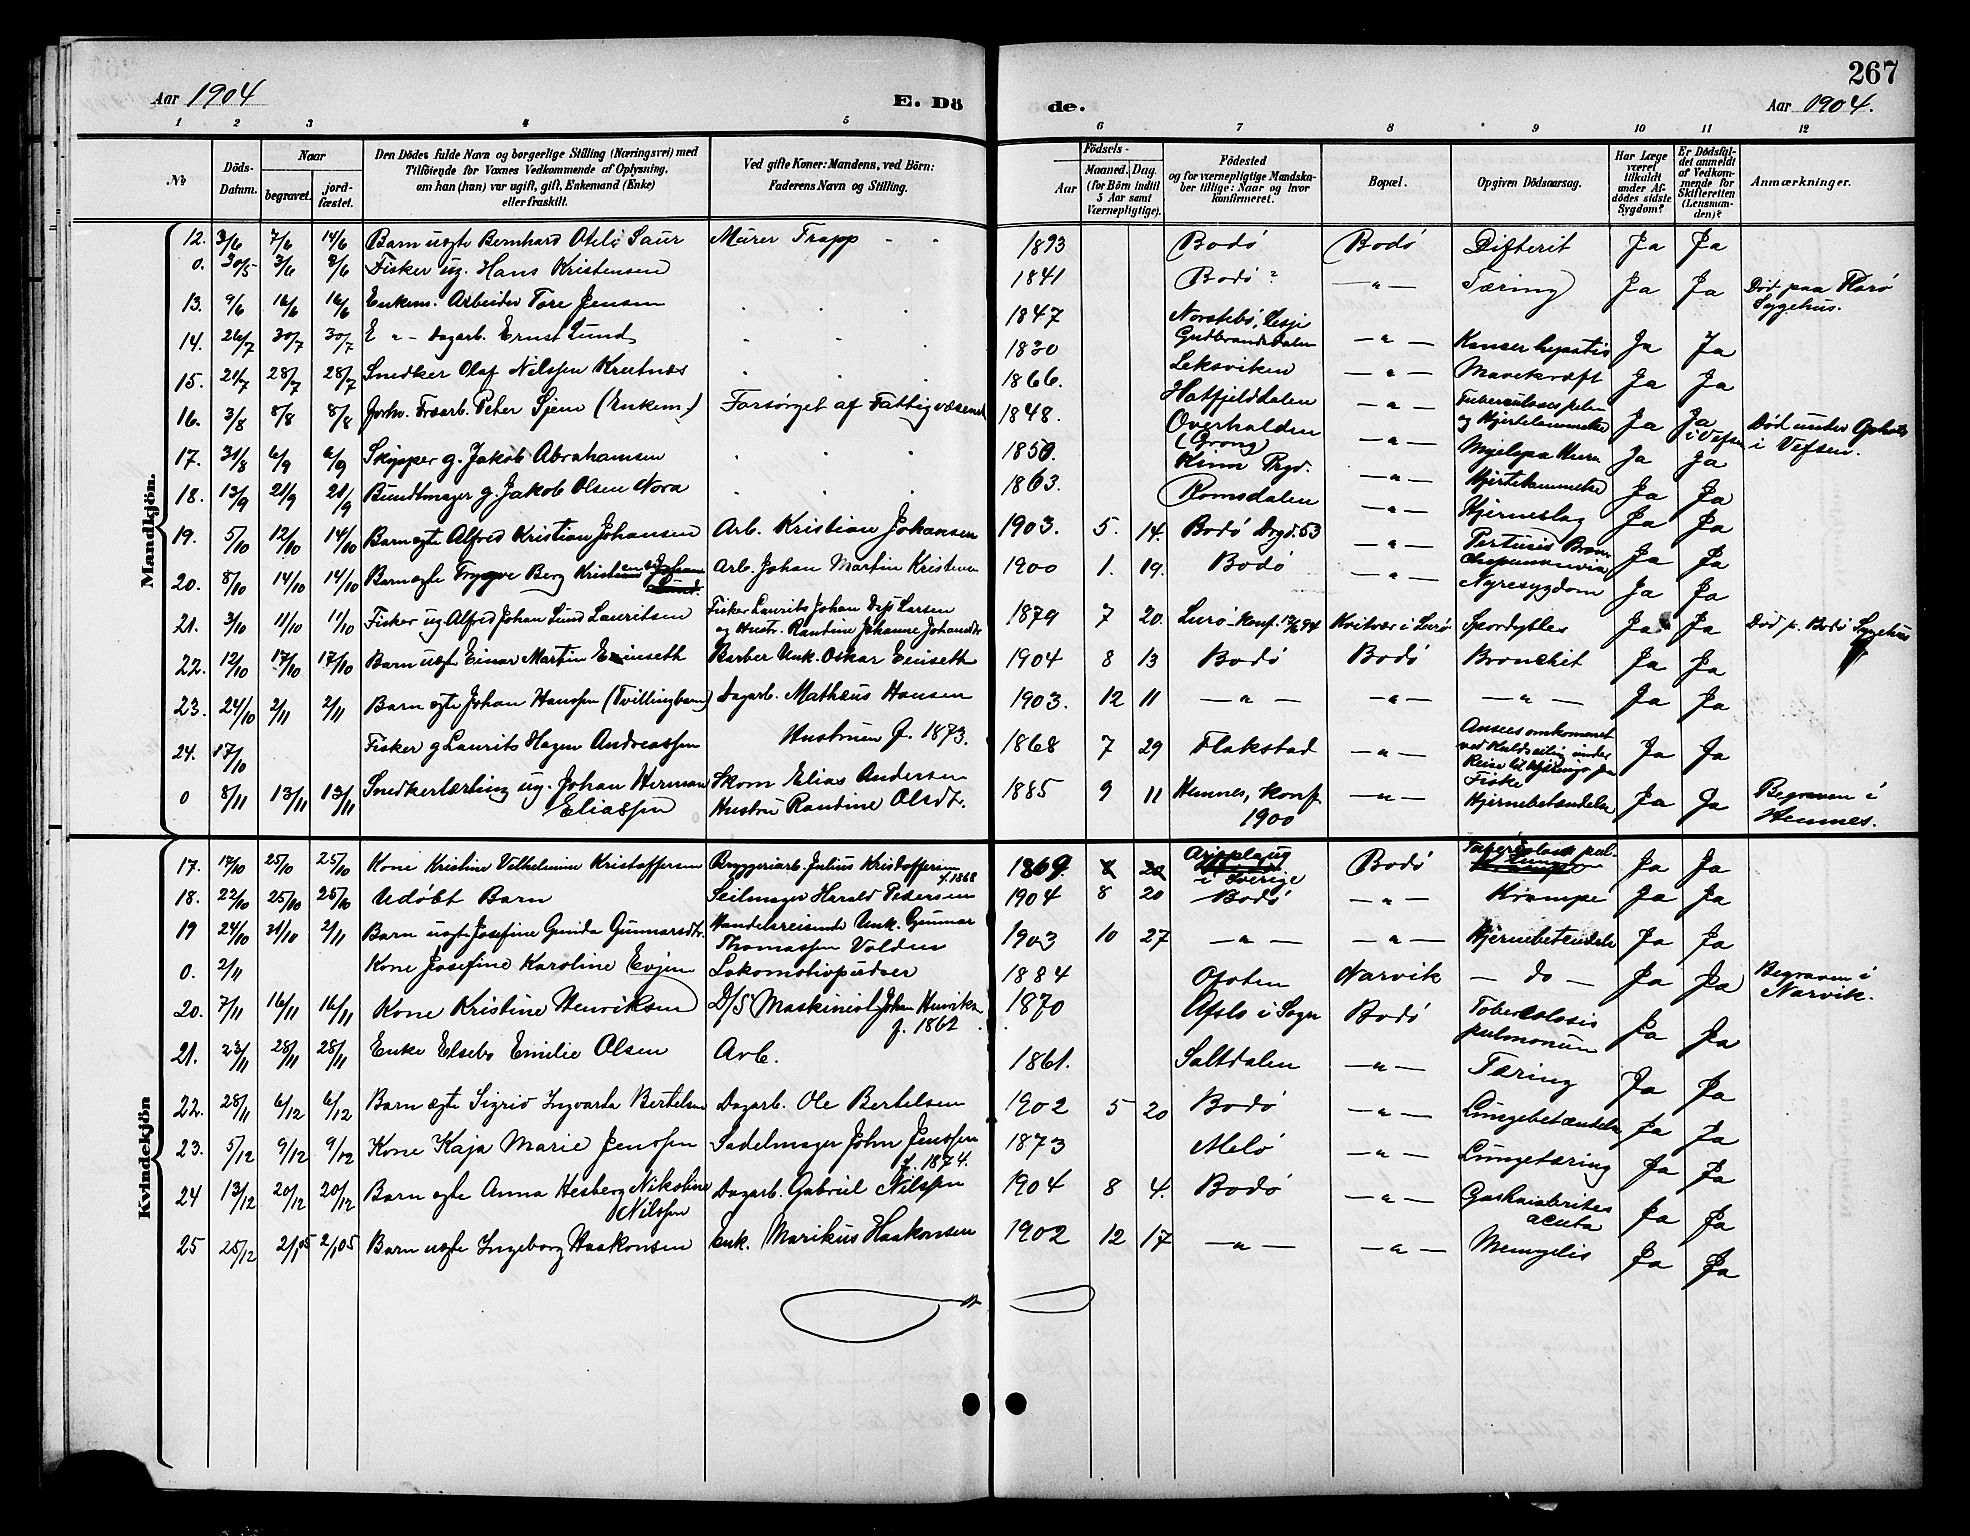 267
Aar 1904
E. Dö
de.
Aar 1904.
1 2 3 4 5 6 7 8 9 10 11 12
№
Döds-Datum.
Naar
begravet.
jord-fæstet.
Den Dödes fulde Navn og borgerlige Stilling (Næringsvei) med
Tilföiende for Voxnes Vedkommende af Oplysning,
om han (hun) var ugift, gift, Enkemand (Enke)
eller fraskilt.
Ved gifte Koner: Mandens, ved Börn:
Faderens Navn og Stilling.
Födsels-
Aar
Maaned. Dag.
(for Börn indtil
5 Aar samt
Værnepligtige).
Födested
og for værnepligtige Mandska-
ber tillige: Naar og hvor
konfirmeret.
Bopæl.
Opgiven Dödsaarsag.
Har Læge
været
tilkaldt
under Af-
dödes sidste
Sygdom?
Er Dödsfal-
det anmeldt
af Vedkom-
mende for
Skifteretten
(Lensman-
den)?
Anmærkninger.
Mandkjön.
12. 3/6 7/6 14/6 Barn uægte Bernhard Otelo Saur Murer Trapp 1893 Bodö Bodö Difterit Ja Ja
0. 30/5 3/6 8/6 Fisker ug. Hans Kristensen 1841 Bodö? — " — Tæring Ja Ja Död paa Florö Sygehus.
13. 9/6 16/6 16/6 Enkem. Arbeider Tore Jensen 1847 Norstebö, Lesje Gudbrandsdalen — " — Kanser hepatis Ja Ja
14. 26/7 30/7 30/7 E " — Dagarb. Ernst Lund 1830 Leksviken — " — Mavekræft Ja Ja
15. 21/7 28/7 28/7 Snedker Olaf Nilssen Krutnæs 1866. Hatfjelddalen — " —
16. 3/8 8/8 8/8 Forhv. Træarb. Peter Sjem (Enkem.) Forsörget af Fattigvæsenet 1848. Overhalden (Grong) — " — og Hjertelammelse Ja Ja i Vefsen Död under Ophold i Vefsen.
17. 31/8 6/9 6/9 Skipper g. Jakob Abrahamsen 1850. Kinn Prgd. — " — Ja Ja
18. 13/9 21/9 21/9 Bundtmager g. Jakob Olsen Nora 1863. Romsdalen — " — Hjertelammelse Ja Ja
Hjerneslag Ja Ja
19. 5/10 12/10 14/10 Barn ægte Alfred Kristian Johansen Arb. Kristian Johansen 1903. 5. 14. Bodö Drgd. 53 — " — Pertusis Bron-chopneumonia Ja Ja
20. 8/10 14/10 14/10 Barn ægte Trygve Berg Kristiansen Arb. Johan Martin Kristensen 1900 1. 19. Bodö — " — Nyresygdom Ja Ja
21. 3/10 11/10 11/10 Fisker ug. Alfred Johan Lund Lauritsen Fisker Laurits Johan Larsen og Hustr. Randine Johanne Johansdtr 1879 7 20. Lurö Konf. 17/6 94 Kvitvær i Lurö Ja Ja Död p. Bodö Sygehus
22. 12/10 17/10 17/10 Barn uægt. Einar Martin Eriinseth Barber Unk. Oskar Einseth 1904 8 13 Bodö Bodö Bronchit Ja Ja
23. 24/10 2/11 2/11 Barn ægte Johan Hanssen (Tvillingbarn) Dagarb. Mathæus Hansen 1903. 12 11 — " — — " — — " — Ja Ja
24. 17/10 Fisker g. Laurits Hagen Andreassen Hustruen f. 1873. 1868 7 29 Flakstad — " — Ansees omkommet ved Kuldseiling under Reise til Hjelmsö paa Fiske Ja Ja
0 8/11 13/11 13/11 Snedkerlærling ug. Johan Herman Eliassen Skom Elias Andersen Hustru Randine Olsdt. 1885 9 11 Hemnes, konf. 1900 — " — Hjernebetændelse Ja Ja Begraven i Hemnes.
Kvindekjön
17. 17/10 25/10 25/10 Kone Kristine Vilhelmine Kristoffersen Bryggeriarb. Julius Kristoffersen f. 1868 1869. Arjeplaug i Sverige Bodö Ja Ja
18. 22/10 25/10 25/10 Udöbt Barn Seilmager Harald Pedersen 1904 8 20 Bodö — " — Krampe Ja Ja
19 24/10 31/10 2/11 Barn uægt. Josefine Gunda Gunnarsdtr. Handelsreisende Unk. Gunnar Thomassen Volden 1903 10 27 — " — — " — Hjernebetændelse Ja Ja
0. 2/11 Kone Josefine Karoline Evjen Lokomotivpudser 1884 Ofoten Narvik — do — Ja Ja Begraven i Narvik.
20. 7/11 16/11 16/11 Kone Kristine Henriksen D/S Maskinist Johan Henriksen f. 1862 1870 Afslo i Sogn Bodö Toberculosis pulmonum Ja Ja
21. 23/11 28/11 28/11 Enke Elsebo Emilie Olsen Arb. 1861. Saltdalen — " — Tæring Ja Ja
22. 28/11 6/12 6/12 Barn ægte Sigrid Ingvarda Bertelsen Dagarb. Ole Bertelsen 1902 5 20 Bodö — " — Lungebetændelse Ja Ja
23. 5/12 9/12 9/12 Kone Kaja Marie Jenssen Sadelmager John Jenssen f. 1874. 1873 Melö — " — Lungetæring Ja Ja
24 13/12 20/12 20/12 Barn ægte Anna Hesberg Nikoline Nilssen Dagarb. Gabriel Nilssen 1904 8 4. Bodö — " — acuta Ja Ja
25 25/12 2/1 05 2/1 05 Barn uægte Ingeborg Haakonsen Enk. Marikus Haakonsen 1902 12 17 — " — — " — Ja Ja